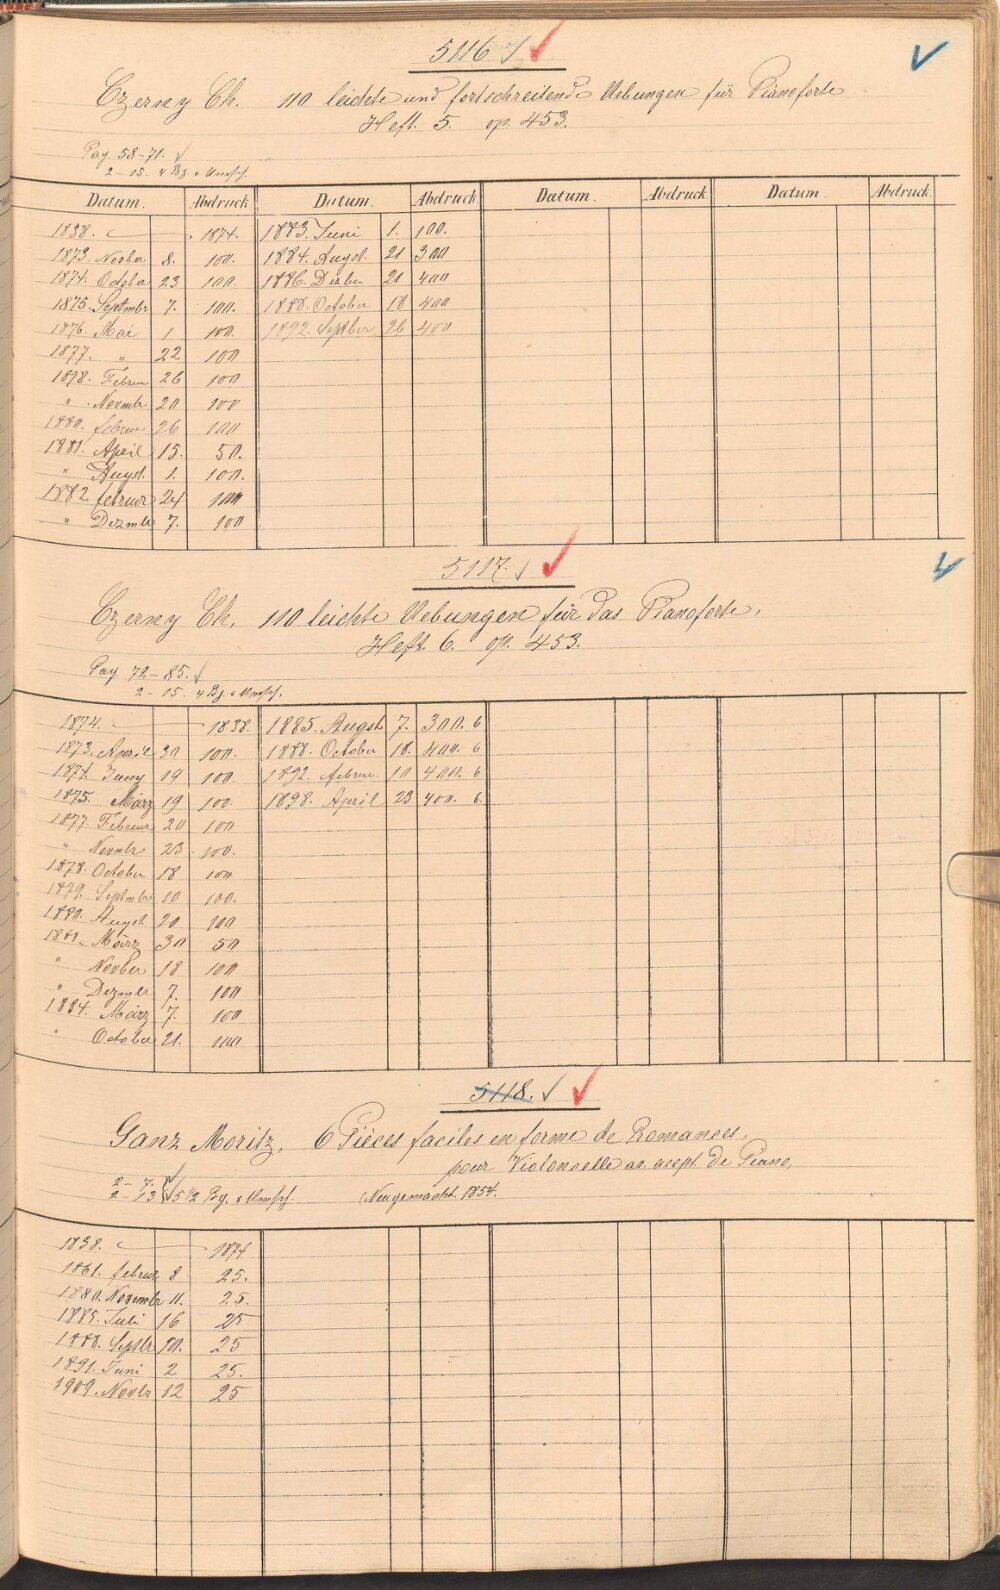 5116
Czerny Ch. 110 leichte und fortschreitende Uebungen für Pianoforte
Heft. 5. op. 453.
Pag 58-71.
2-15. 4 Bg. + Umsch.
Datum. Abdruck Datum. Abdruck Datum. Abdruck. Datum. Abdruck.
1838. 1874. 1883. Juni 1. 100.
1873. Novber 8. 100. 1884. Augst. 21 300
1874. Octobr 23 100. 1886. Dezber 21 400
1875. Septmbr 7. 100. 1888. October 18 400
1876. Mai 1 100. 1892. Septber 26 400
1877. " 22 100
1878. Februr 26 100
" Novmbr 20 100
1880. februr 26 100
1881. April 15. 50.
" Augst. 1. 100.
1882 februar 24 100
" Dezmbr 7. 100
5117.
Czerny Ch. 110 leichte Uebungen für das Pianoforte.
Heft. 6. op. 453.
Pag 72-85.
2-15. 4 Bg + Umsch.
1874. 1838. 1885. Augst 7. 300. 6
1873. April 30 100. 1888. October 18. 400. 6
1874. Juny 19 100. 1892. februr. 10 400. 6
1875. März 19 100. 1898. April 23 400. 6.
1877. Februar 20 100
" Novmbr 23 100.
1878. October 18 100
1879. Septmbr 10 100.
1880. Augst. 20 100
1881. März 30 50
" Novber 18 100
" Dezmbr 7. 100
1884. März 7. 100
" October 21. 100
5118.
Ganz Moritz. 6 Pièces faciles en forme de Romances,
pour Violoncelle av. acept. de Piano.
2-7.
2-13 5 1/2 Bg. + Umsch. (Neugemacht. 1854.
1838. 1874
1861. februr 8 25.
1880. Novembr 11. 25.
1885. Juli 16 25
1888. Septbr 10. 25
1891. Juni 2 25.
1909. Novbr 12 25